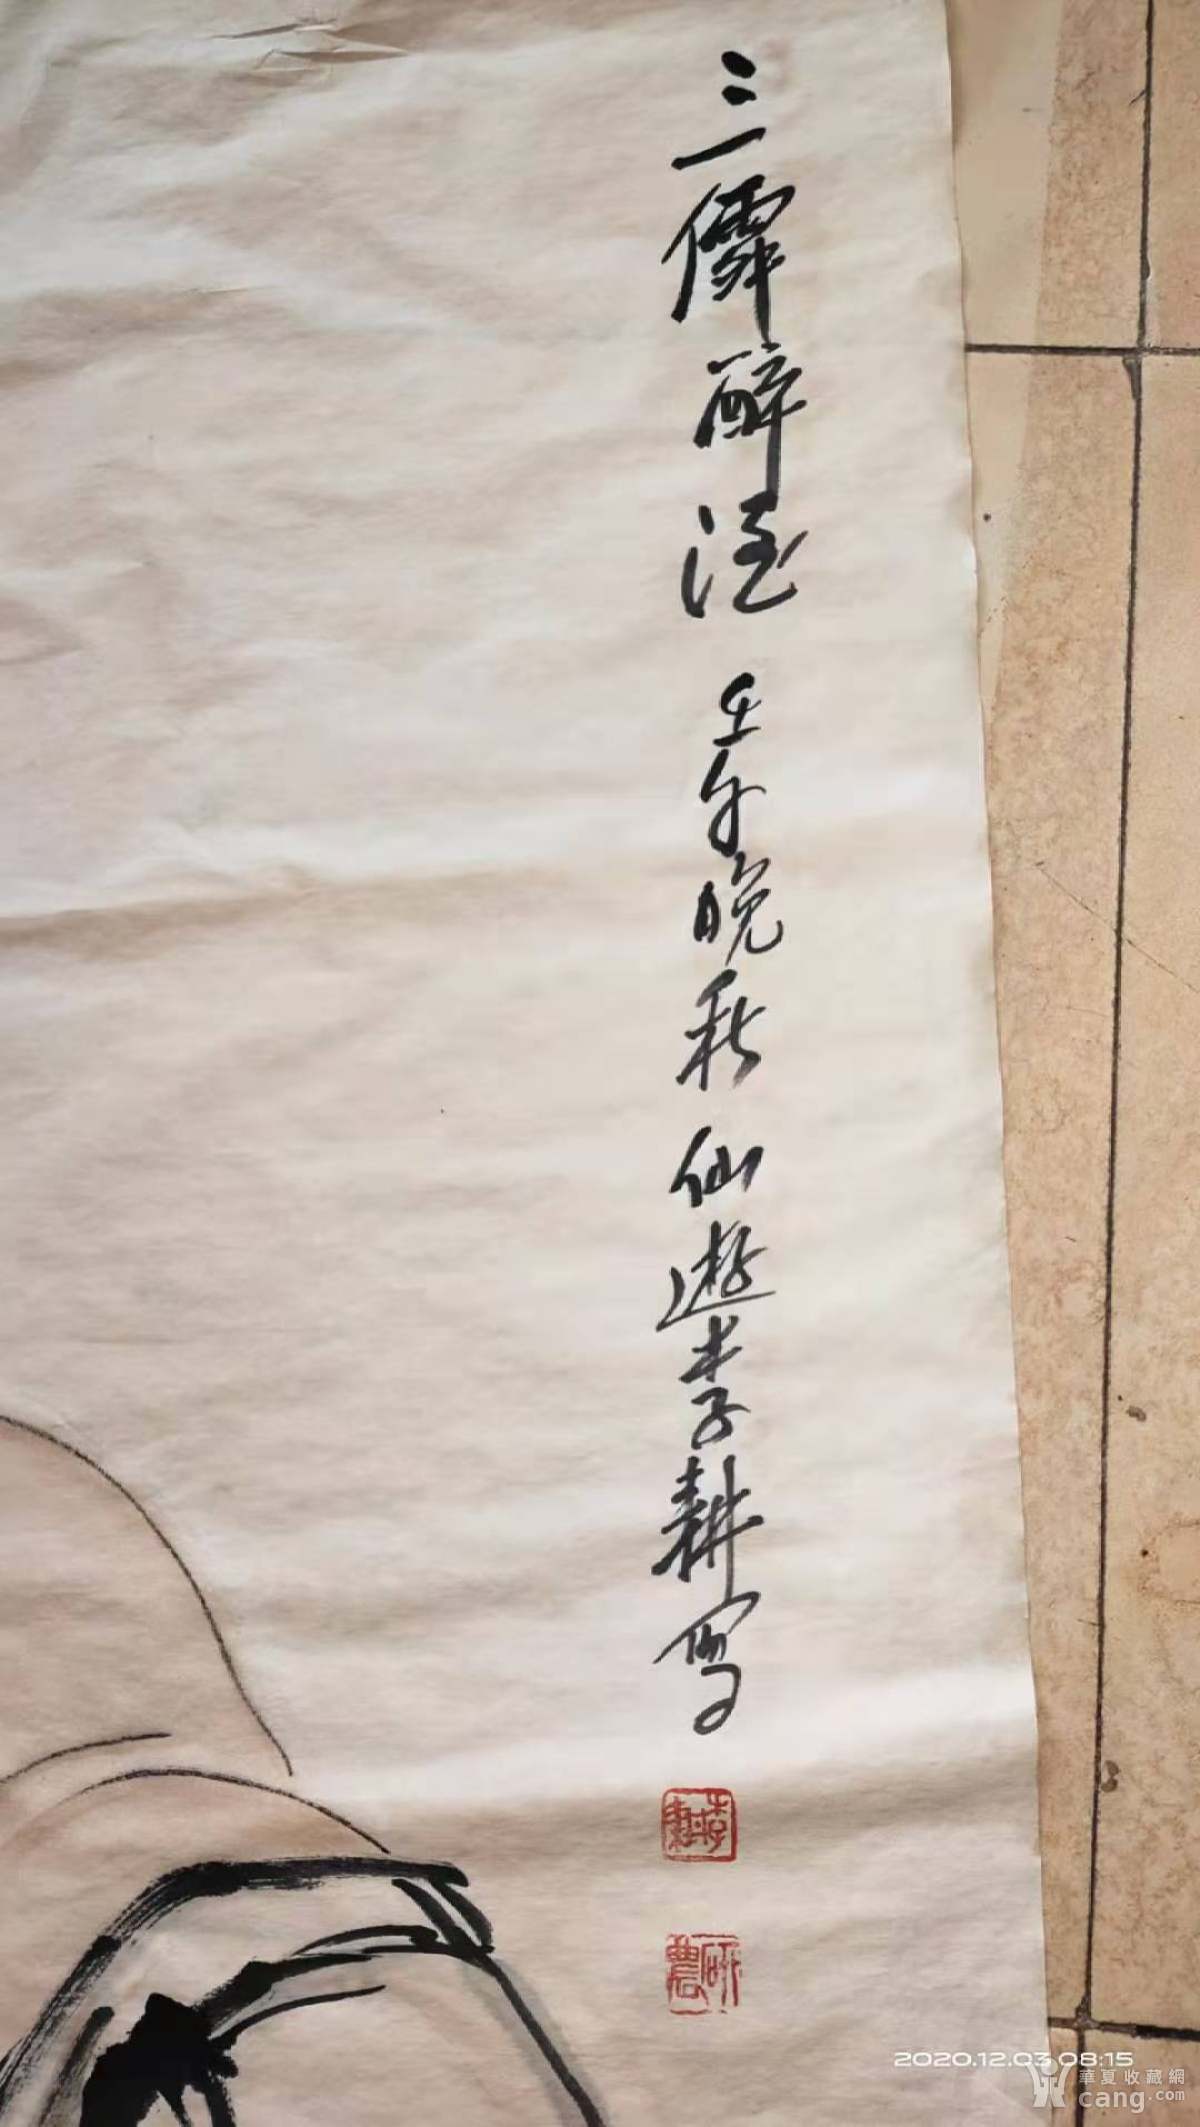 三僊醉酒 壬午晚秋 仙遊李耕寫
李耕
研農
2020.12.03 08:15
華夏收藏網
cang.com